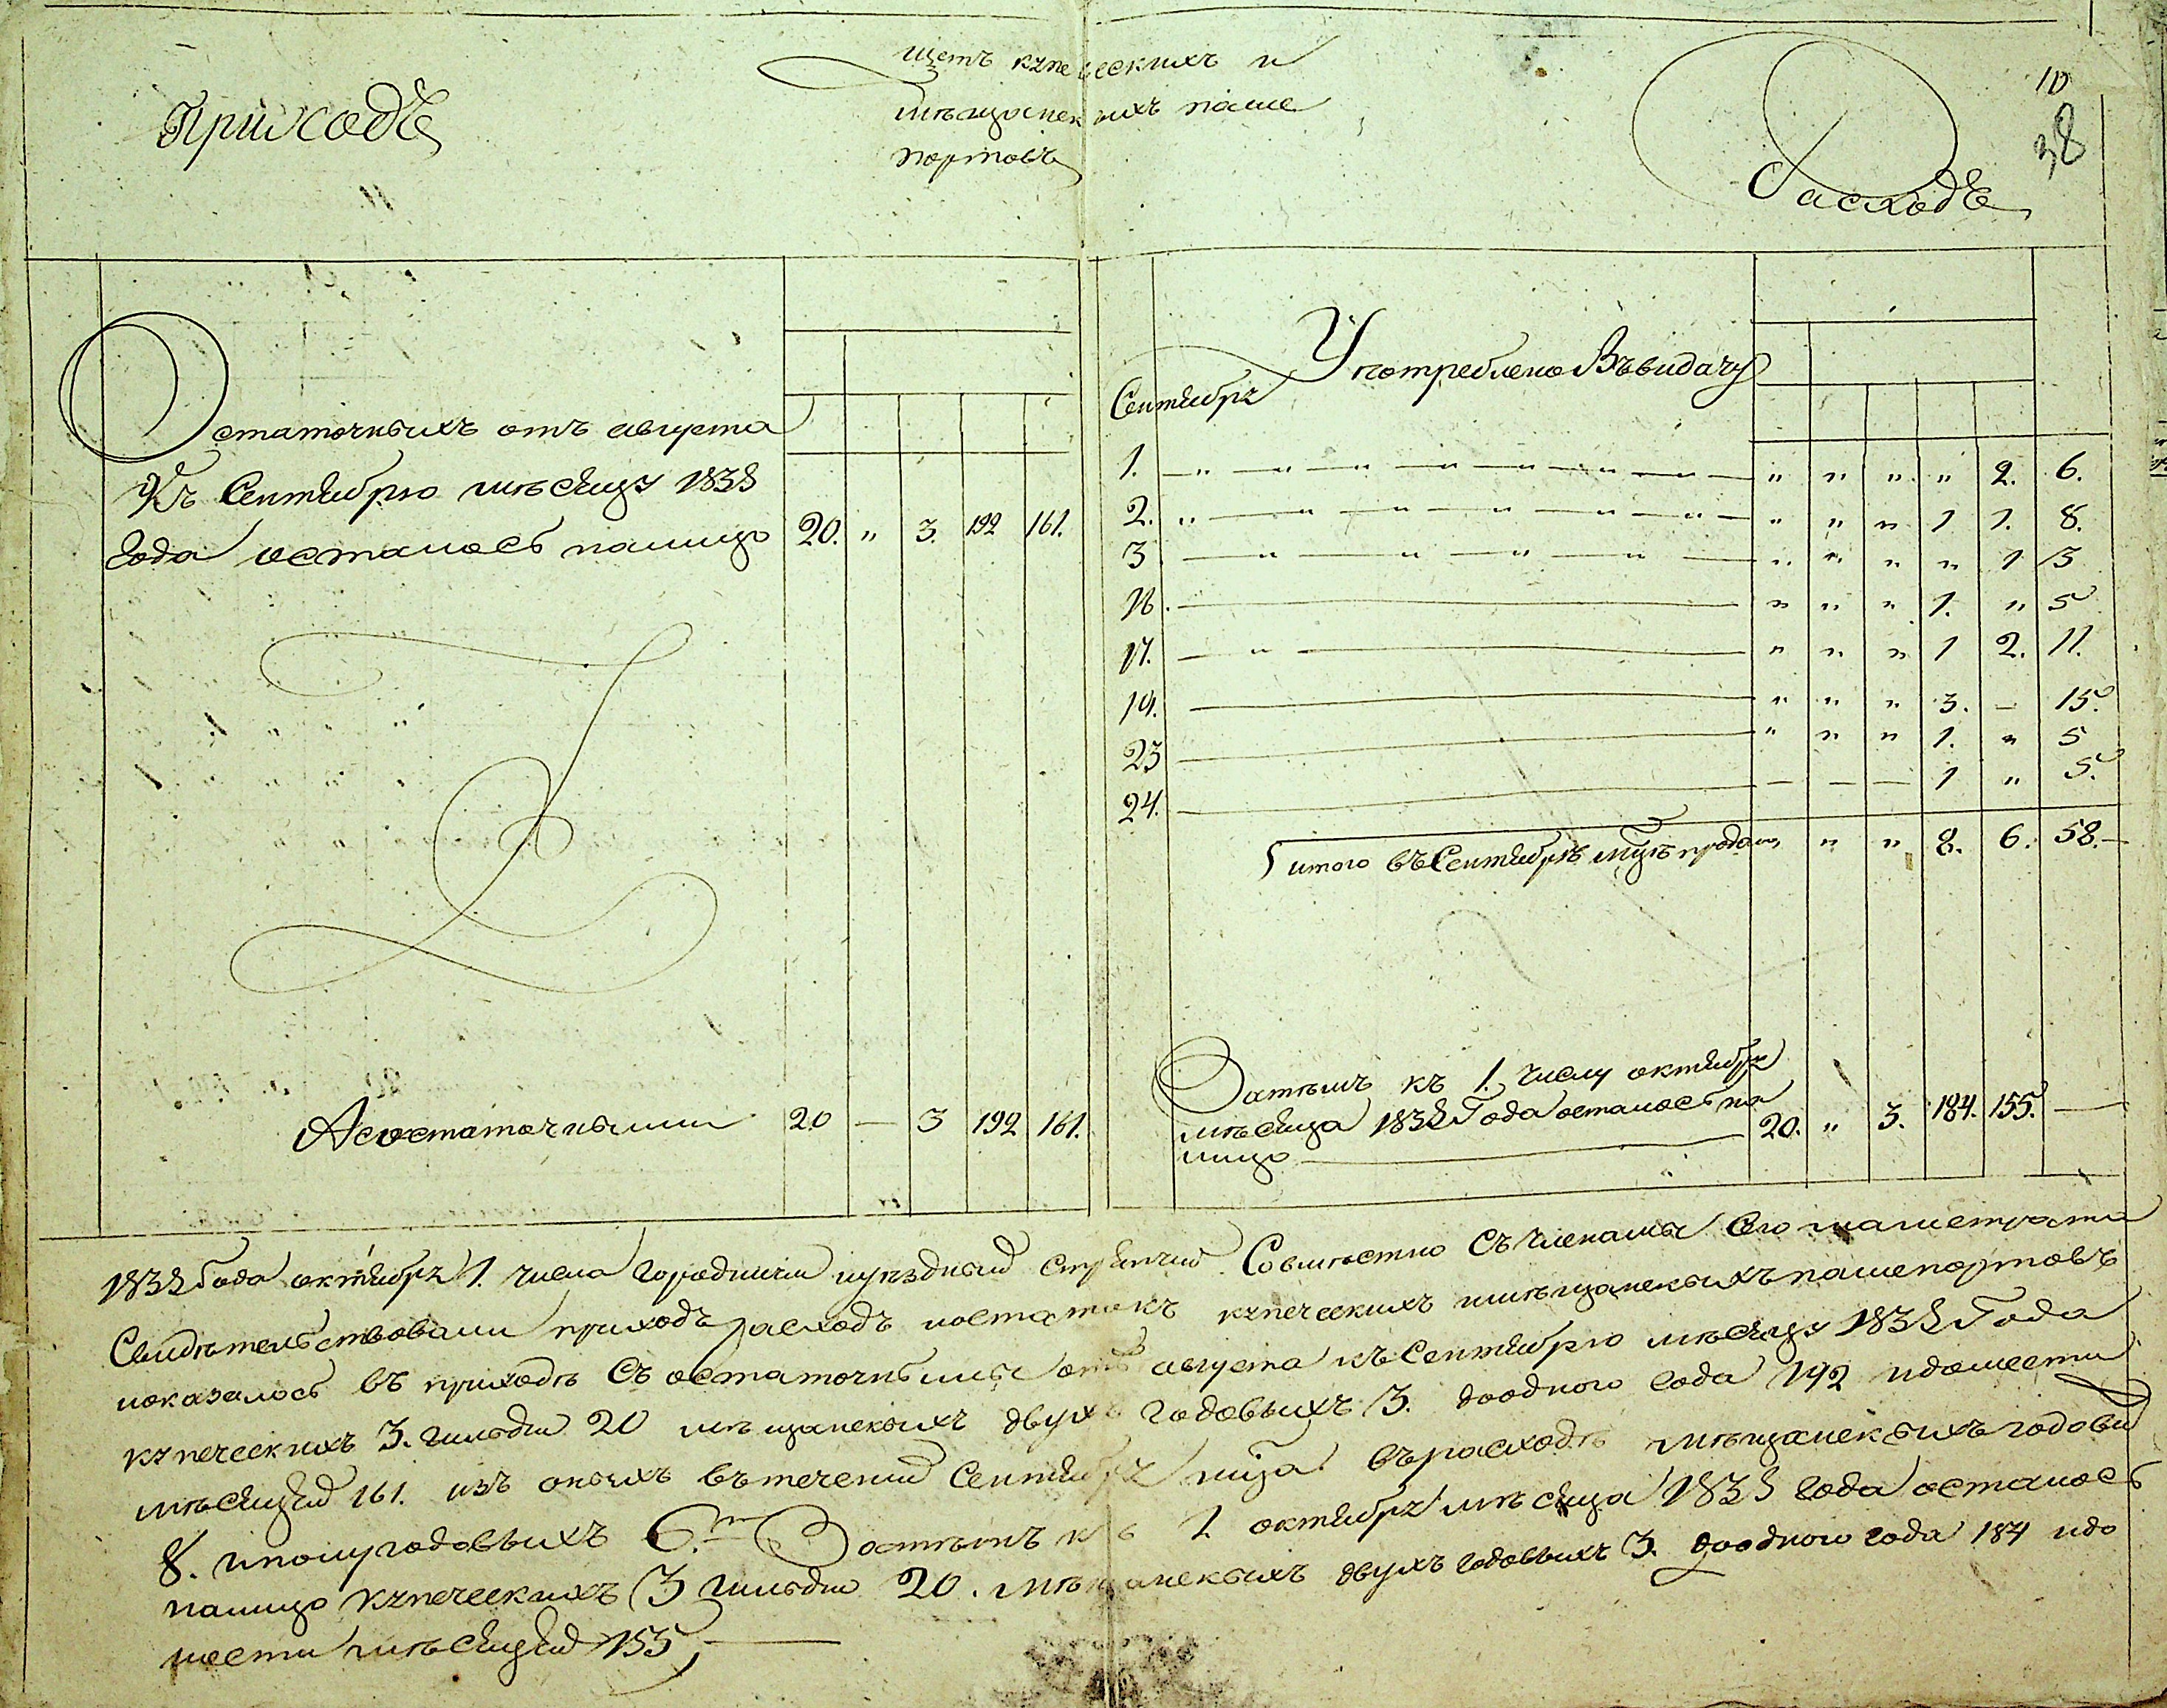 щетъ купеческихъ и
мѣщанскихъ паше
портовъ
Приходъ
Расходъ
10
38
Остаточныхъ отъ августа
Къ Сентябрю мѣсяцу 1838
Года осталось налицо 20. " 3. 192 161.
Асостаточными 20 — 3 192 161.
Употреблено Въвидачу
Сентябрь
1. " " " " 2. 6.
2. " " " 1 1. 8.
3 " " " " 1 3
16. " " " 1. " 5
17. " " " 1 2. 11.
19. " " " 3. — 15.
23 " " " 1. " 5
24. — — — 1 " 5.
итого въ Сентябрѣ мцѣ продано " " 8. 6. 58.—
Затѣмъ къ 1. числу октября
мѣсяца 1838 Года осталось на
лицо 20. " 3. 184. 155. —
1838 Года октября 1. числа Городничи иуѣздный стряпчий Совмѣстно Съ членами Сего магистрата
Свидѣтельствовали приходъ расходъ иостатокъ купеческихъ имѣщанскихъ пашепортовъ
иоказалось въ приходѣ Съ остаточными отъ августа къ Сентябрю мѣсяцу 1838 Года
купеческихъ 3. гильди 20 мѣщанскихъ двухъ Годовыхъ 3. доодного года 192 идошести
мѣсяцей 161. изъ оныхъ въ течении Сентября мца въ расходѣ мѣщанскихъ годовы
8. иполугодовыхъ 6. Затѣмъ къ 1 октября мѣсяца 1838 года осталось
налицо купеческихъ 3 гильди 20. мѣщанскихъ двухъ годовыхъ 3. доодного года 184 идо
шести мѣсяцей 155,